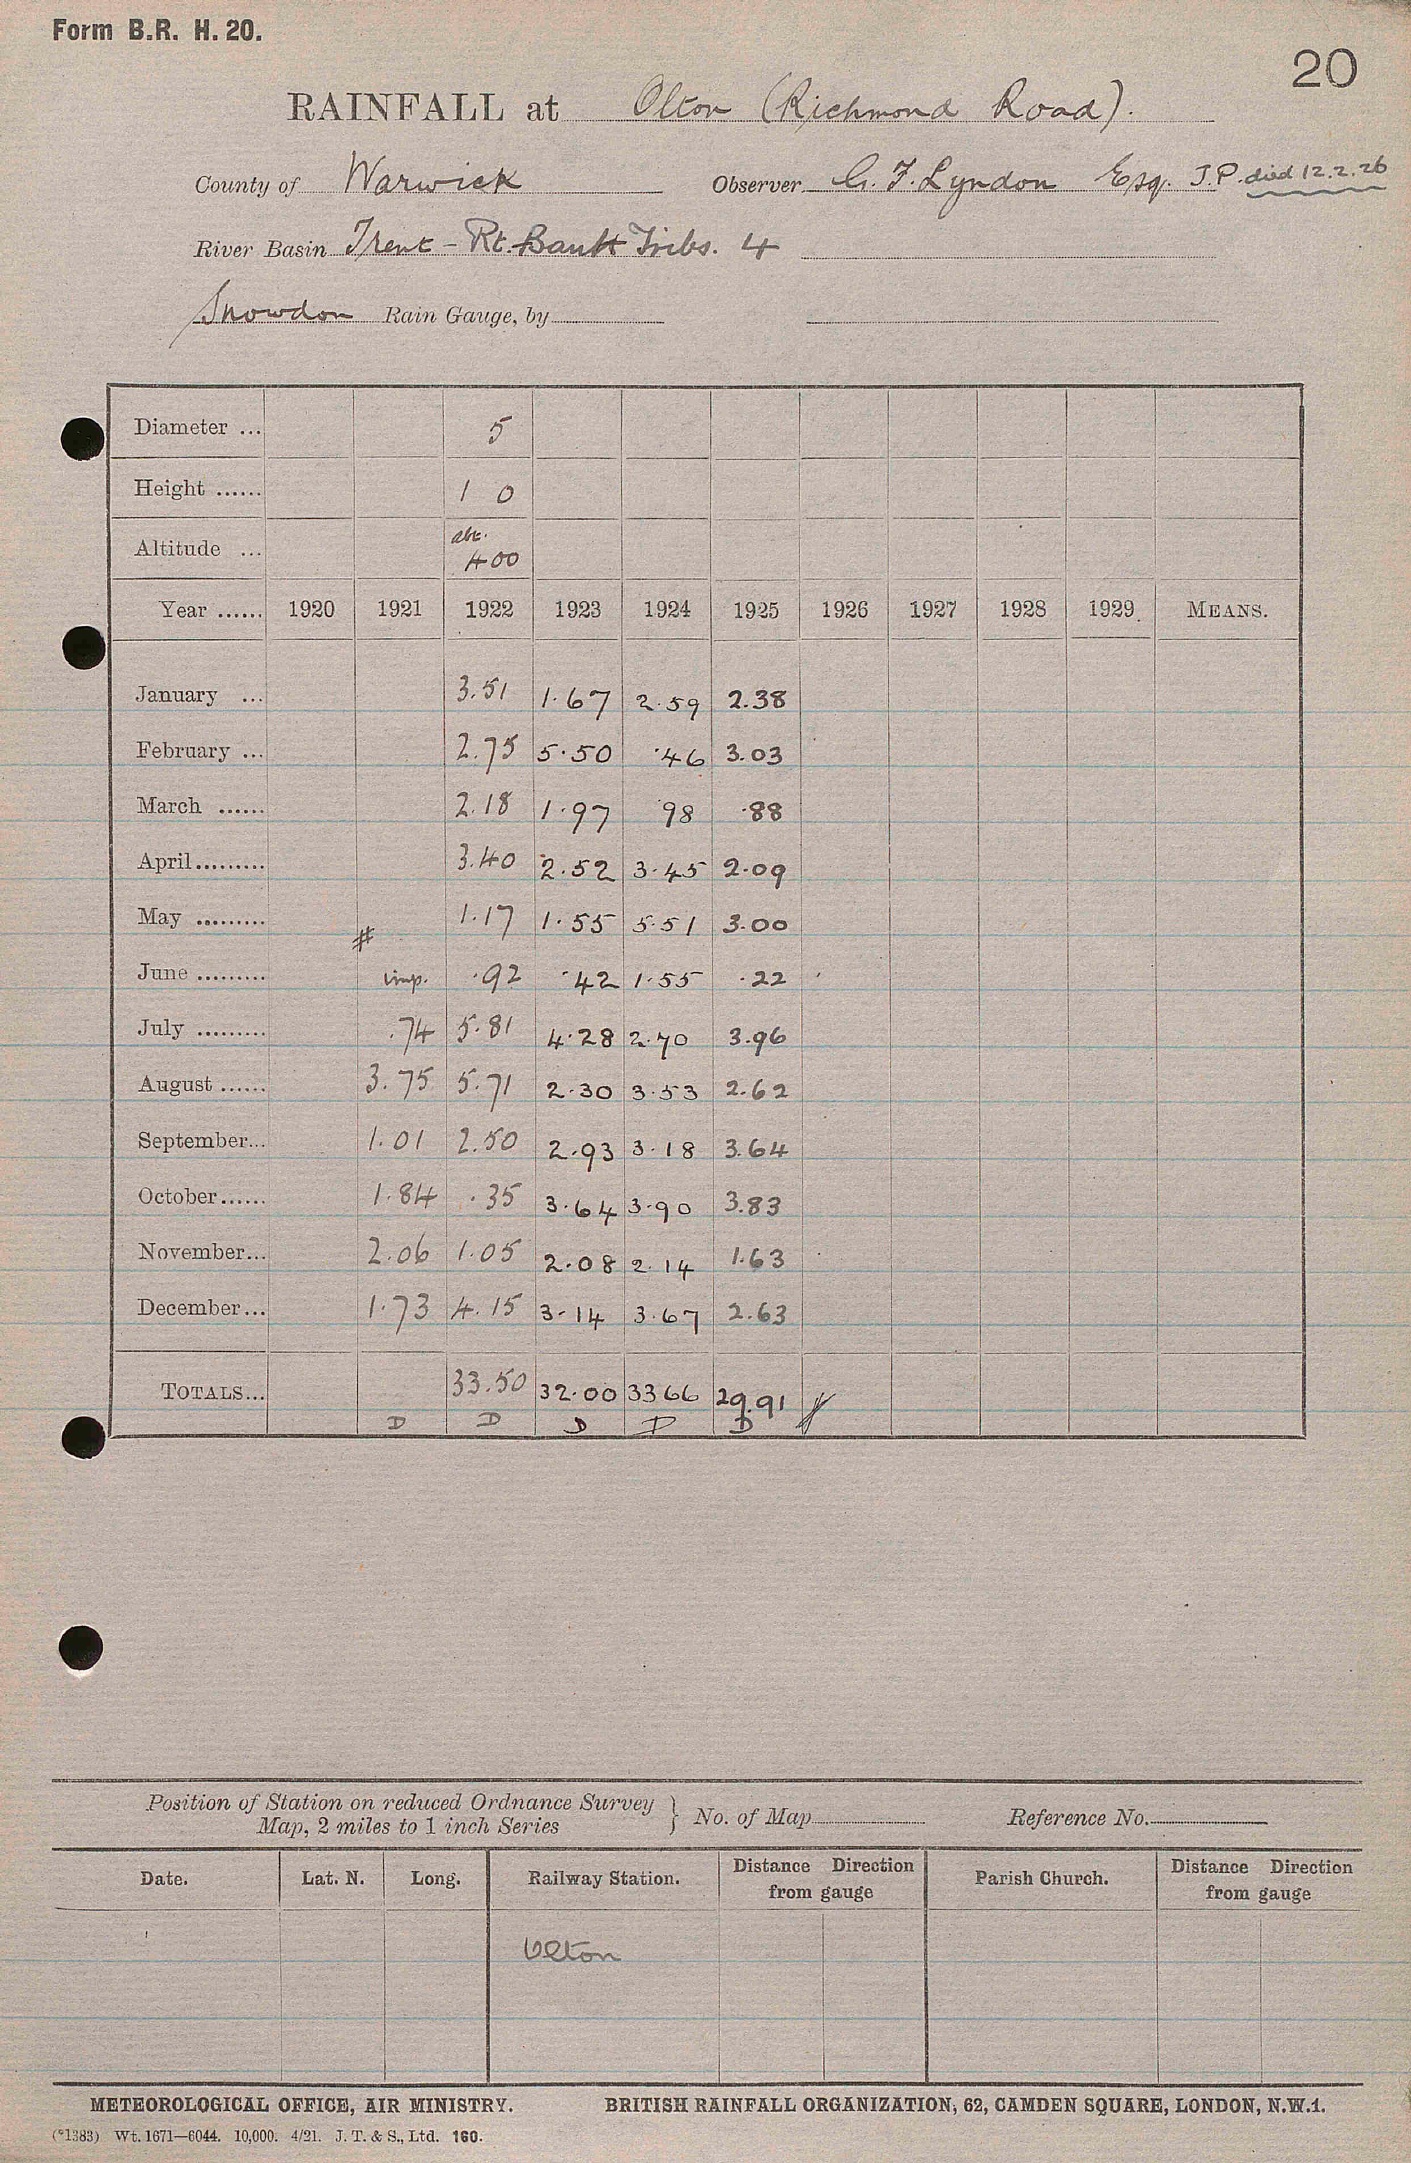 Form B.R. H. 20.
20
RAINFALL at Olton (Richmond Road).
County of Warwick Observer G. F. Lyndon Esq. J.P. died 12.2.26
River Basin Trent - Rt. Bank Tribs. 4
Snowdon Rain Gauge, by
Diameter ... 5
Height ...... 1 0
Altitude ... abt. 400
Year ...... 1920 1921 1922 1923 1924 1925 1926 1927 1928 1929. MEANS.
January ... 3.51 1.67 2.59 2.38
February ... 2.75 5.50 .46 3.03
March ...... 2.18 1.97 .98 .88
April......... 3.40 2.52 3.45 2.09
May ......... 1.17 1.55 5.51 3.00
#
June ......... imp. .92 .42 1.55 .22
July ......... .74 5.81 4.28 2.70 3.96
August ...... 3.75 5.71 2.30 3.53 2.62
September... 1.01 2.50 2.93 3.18 3.64
October...... 1.84 .35 3.64 3.90 3.83
November... 2.06 1.05 2.08 2.14 1.63
December... 1.73 4.15 3.14 3.67 2.63
TOTALS... 33.50 32.00 33 66 29.91
D D D D D
Position of Station on reduced Ordnance Survey
Map, 2 miles to 1 inch Series } No. of Map Reference No.
Date. Lat. N. Long. Railway Station. Distance Direction from gauge Parish Church. Distance Direction from gauge
Olton
METEOROLOGICAL OFFICE, AIR MINISTRY. BRITISH RAINFALL ORGANIZATION, 62, CAMDEN SQUARE, LONDON, N.W.1.
(*1383) Wt. 1671—6044. 10,000. 4/21. J. T. & S., Ltd. 160.